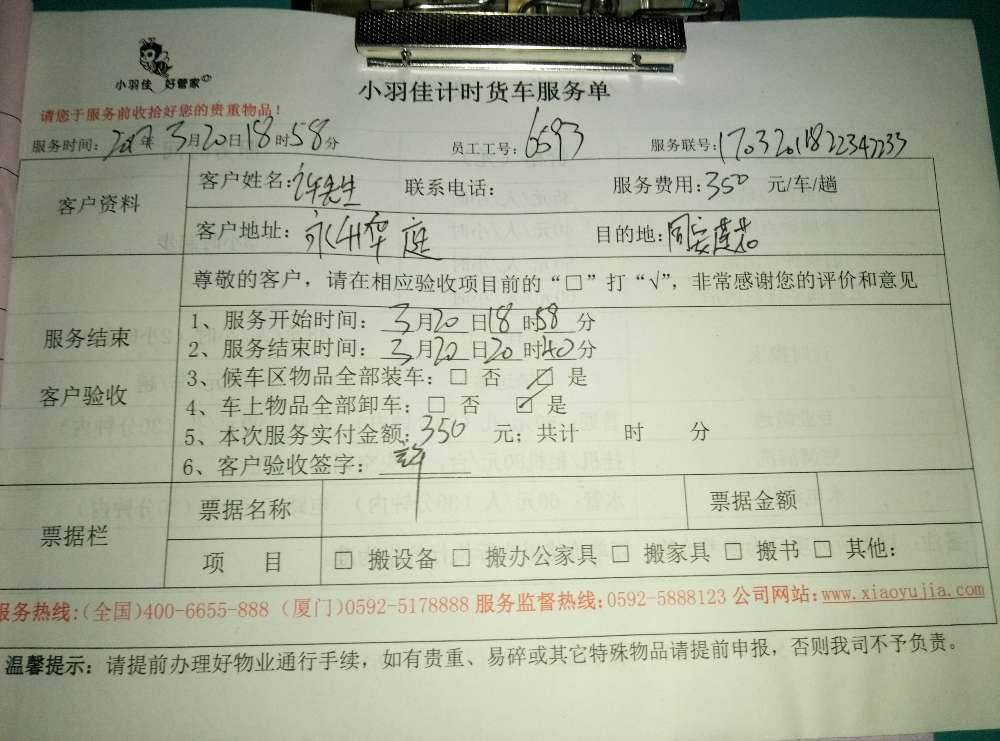 小羽佳 好管家
小羽佳计时货车服务单
请您于服务前收拾好您的贵重物品！
服务时间：2017年3月20日18时58分 员工工号：6593 服务联号：
客户资料 客户姓名：许先生 联系电话： 服务费用：350 元/车/趟
客户地址：永升华庭 目的地：同安莲花
尊敬的客户，请在相应验收项目前的“□”打“√”，非常感谢您的评价和意见
服务结束
客户验收
1、服务开始时间：3月20日18时58分
2、服务结束时间：3月20日20时40分
3、候车区物品全部装车：□ 否 ☑ 是
4、车上物品全部卸车：□ 否 ☑ 是
5、本次服务实付金额：350 元；共计 时 分
6、客户验收签字：许
票据栏 票据名称 票据金额
项 目 □ 搬设备 □ 搬办公家具 □ 搬家具 □ 搬书 □ 其他：
服务热线：(全国)400-6655-888 (厦门)0592-5178888 服务监督热线：0592-5888123 公司网站：www.xiaoyujia.com
温馨提示：请提前办理好物业通行手续，如有贵重、易碎或其它特殊物品请提前申报，否则我司不予负责。